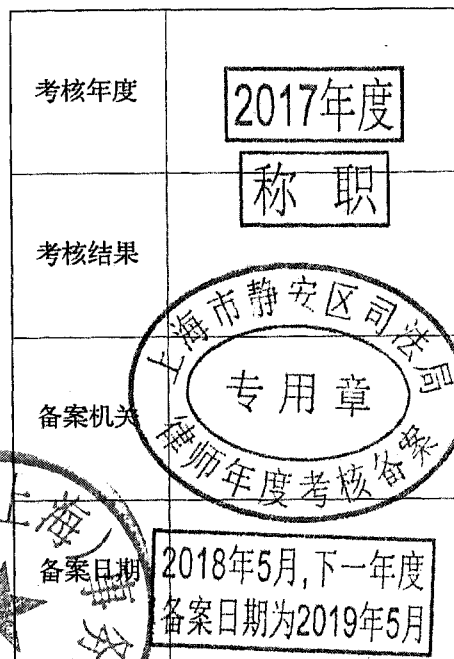 考核年度
2017年度
称 职
考核结果
上海市静安区司法局
专用章
律师年度考核备案
备案机关
备案日期
2018年5月,下一年度
备案日期为2019年5月